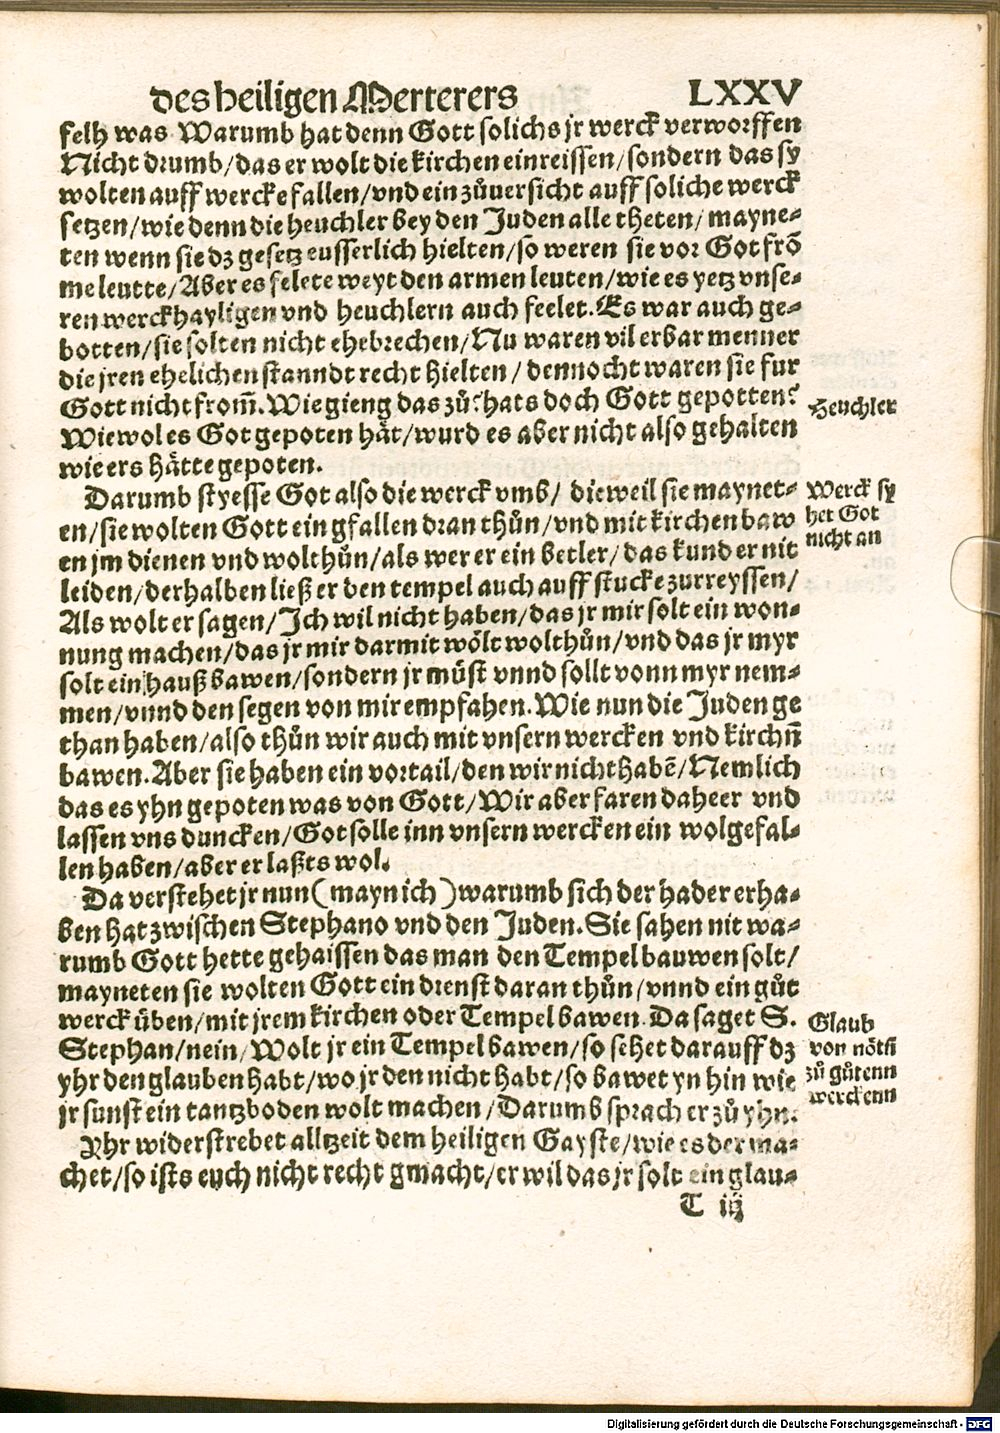 des heiligen Merterers LXXV
felh was Warumb hat denn Gott solichs jr werck verworffen
Nicht drumb/das er wolt die kirchen einreissen/sondern das sy
wolten auff wercke fallen/vnd ein zůuersicht auff soliche werck
setzen/wie denn die heuchler bey den Juden alle theten/ mayne-
ten wenn sie dz gesetz eusserlich hielten/so weren sie vor Got frõ
me leutte/Aber es felete weyt den armen leuten/wie es yetz vnse-
ren werckhayligen vnd heuchlern auch feelet. Es war auch ge-
botten/sie solten nicht ehebrechen/Nu waren vil erbar menner
die jren ehelichen stanndt recht hielten/ dennocht waren sie fur
Gott nicht from̃. Wie gieng das zů? hats doch Gott gepotten?
Heuchler
Wiewol es Got gepoten hät/wurd es aber nicht also gehalten
wie ers hätte gepoten.
Darumb styesse Got also die werck vmb/ dieweil sie maynet-
Werck sy
en/sie wolten Gott ein gfallen dran thůn/vnd mit kirchen baw
het Got
en jm dienen vnd wolthůn/als wer er ein betler/das kund er nit
nicht an
leiden/derhalben ließ er den tempel auch auff stucke zurreyssen/
Als wolt er sagen/Ich wil nicht haben/das jr mir solt ein won-
nung machen/das jr mir darmit wölt wolthůn/vnd das jr myr
solt ein hauß bawen/sondern jr müst vnnd sollt vonn myr nem-
men/vnnd den segen von mir empfahen. Wie nun die Juden ge
than haben/also thůn wir auch mit vnsern wercken vnd kirchñ
bawen. Aber sie haben ein vortail/den wir nicht habẽ/Nemlich
das es yhn gepoten was von Gott/Wir aber faren daheer vnd
lassen vns duncken/Got solle inn vnsern wercken ein wolgefal-
len haben/aber er laßts wol.
Da verstehet jr nun (mayn ich) warumb sich der hader erha-
ben hat zwischen Stephano vnd den Juden. Sie sahen nit wa-
rumb Gott hette gehaissen das man den Tempel bauwen solt/
mayneten sie wolten Gott ein dienst daran thůn/vnnd ein gůt
werck üben/mit jrem kirchen oder Tempel bawen. Da saget S.
Glaub
Stephan/nein/Wolt jr ein Tempel bawen/so sehet darauff dz
von nötñ
yhr den glauben habt/wo jr den nicht habt/so bawet yn hin wie
zů gůtenn
jr sunst ein tantzboden wolt machen/Darumb sprach er zů yhn.
werckenn
Yhr widerstrebet alltzeit dem heiligen Gayste/wie es der ma-
chet/so ists euch nicht recht gmacht/er wil das jr solt ein glau-
T iij
Digitalisierung gefördert durch die Deutsche Forschungsgemeinschaft - DFG